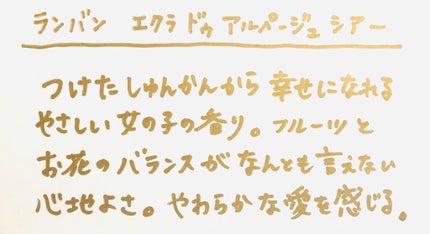 ランバン エクラ ドゥ アルページュ シアー
つけたしゅんかんから 幸せになれる
やさしい女の子の香り。フルーツと
お花のバランスがなんとも言えない
心地よさ。やわらかな愛を感じる。